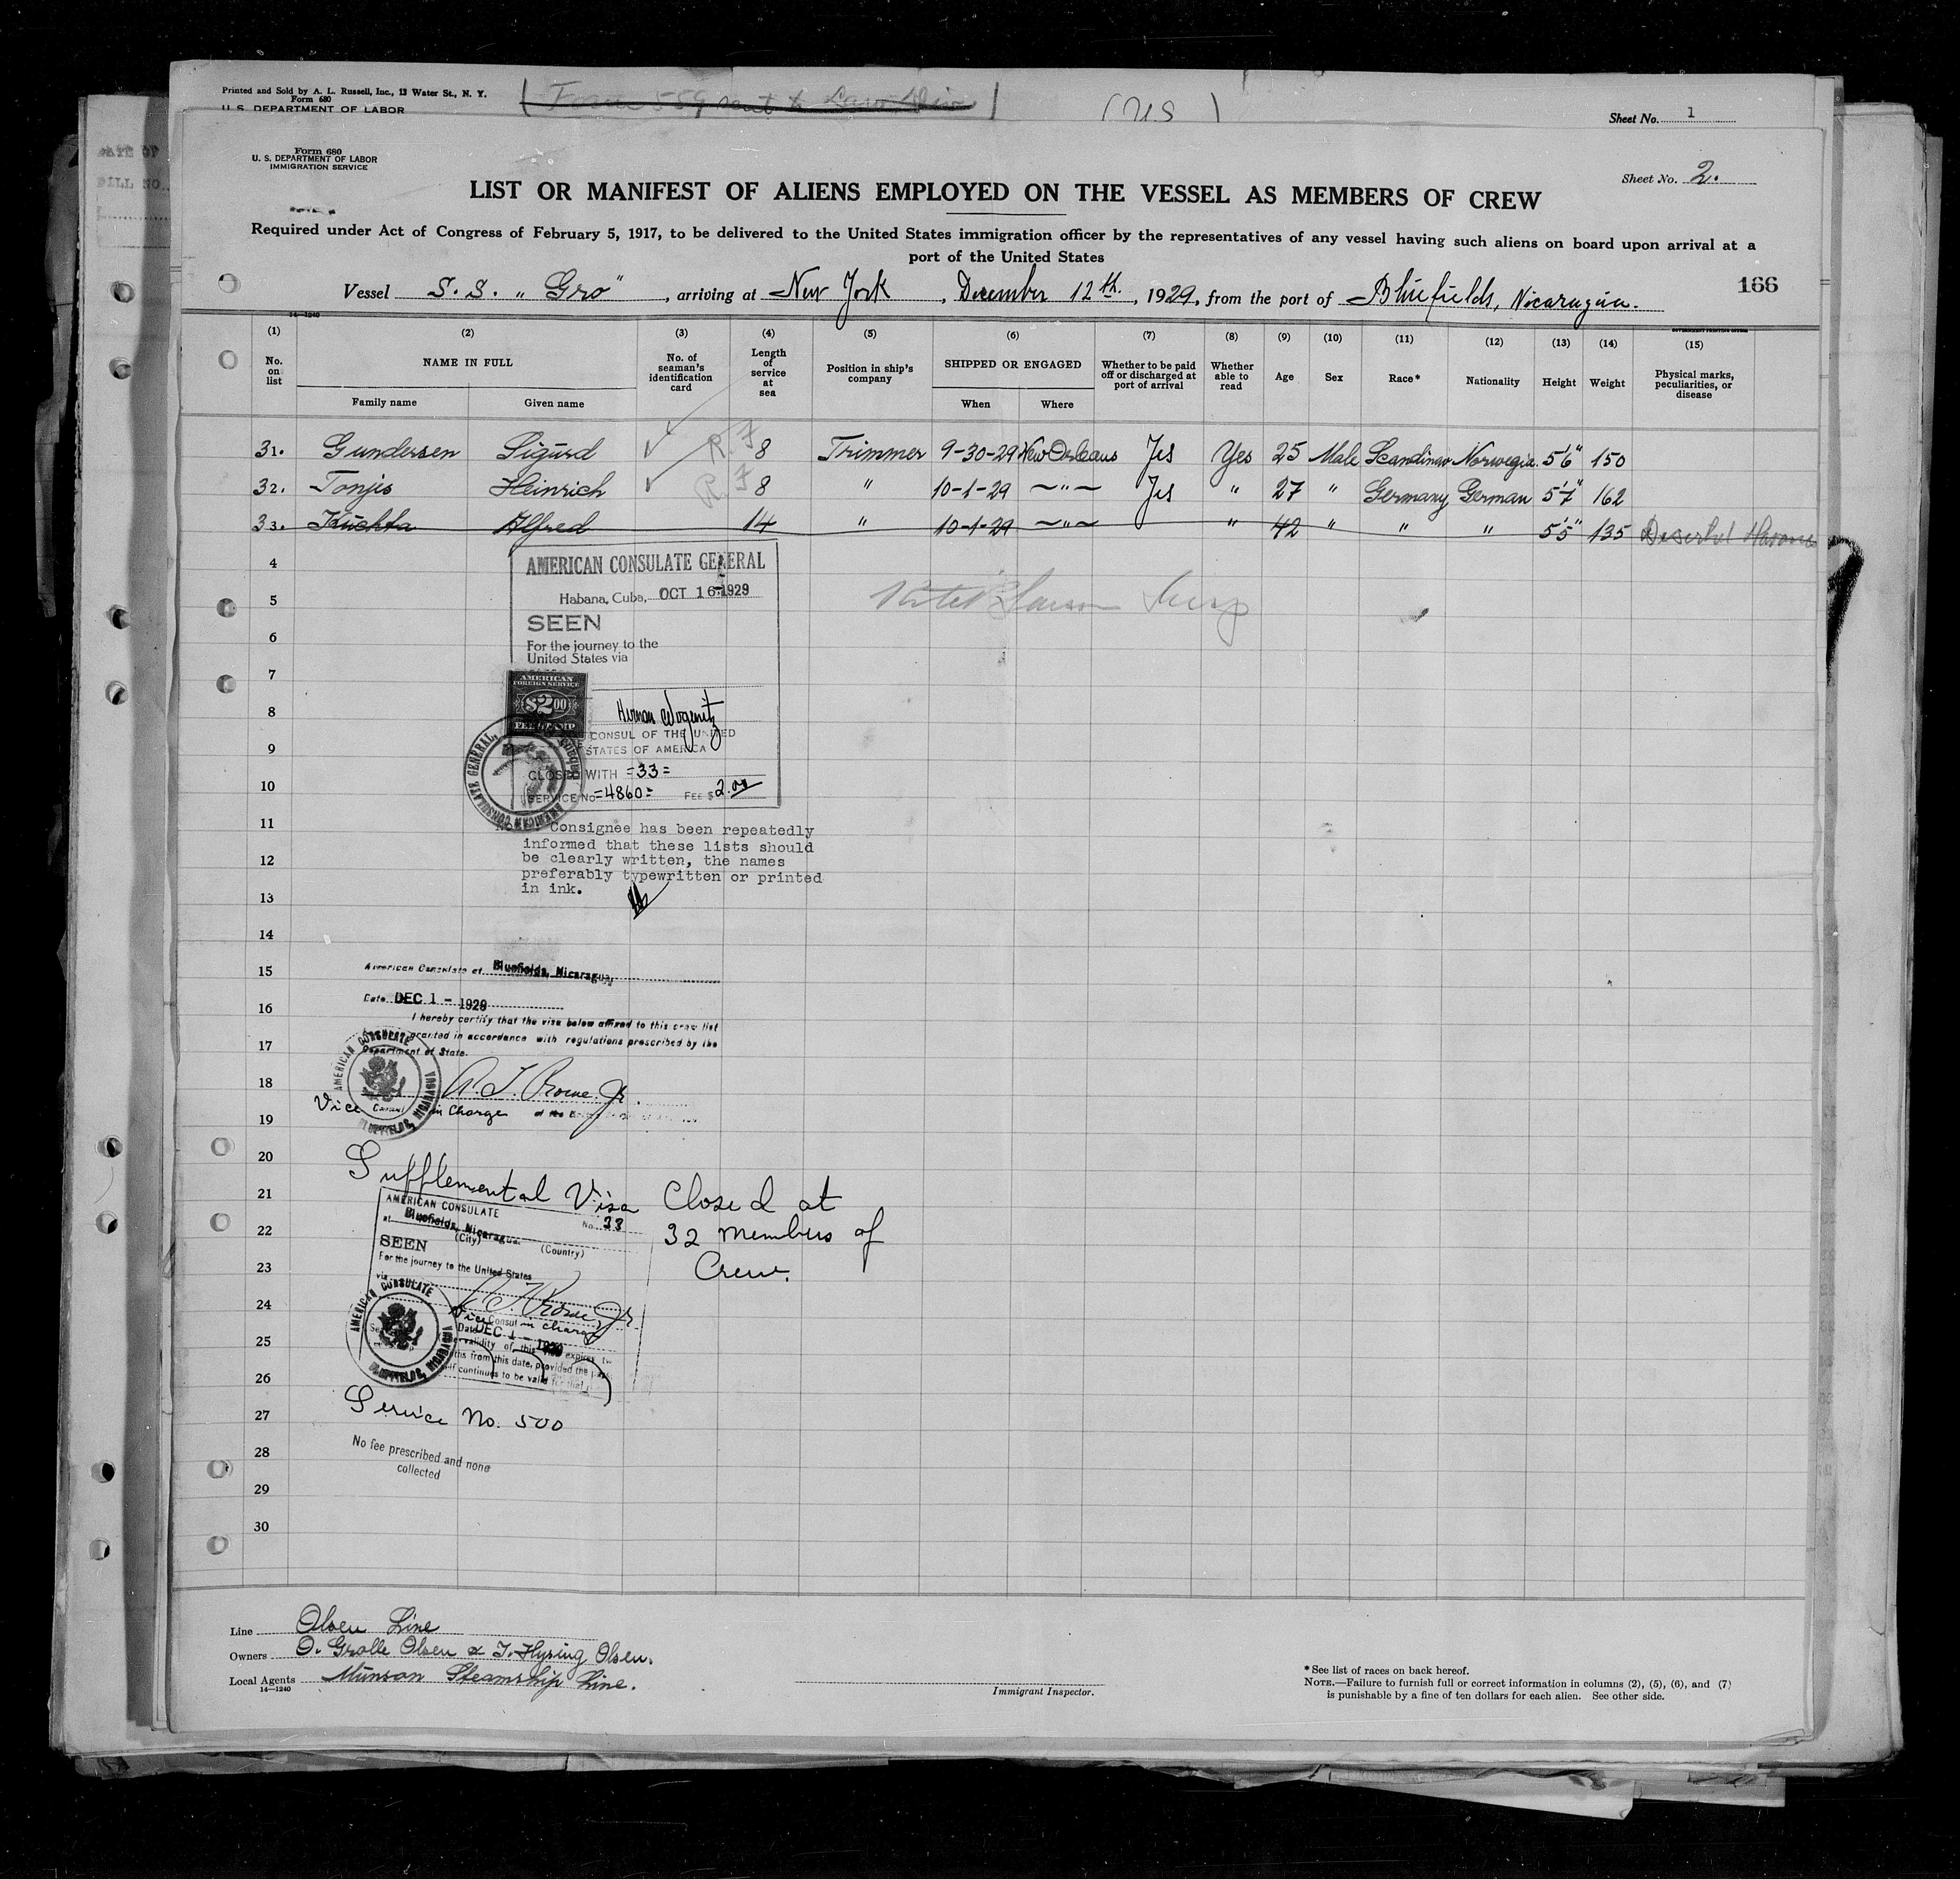 Printed and Sold by A. L. Russell, Inc., 13 Water St., N. Y.
Form 680
U. S. DEPARTMENT OF LABOR
(US)
Sheet No. 1
Form 680
U. S. DEPARTMENT OF LABOR
IMMIGRATION SERVICE
Sheet No. 2.
LIST OR MANIFEST OF ALIENS EMPLOYED ON THE VESSEL AS MEMBERS OF CREW
Required under Act of Congress of February 5, 1917, to be delivered to the United States immigration officer by the representatives of any vessel having such aliens on board upon arrival at a
port of the United States
Vessel S. S. „ Gro", arriving at New York, December 12th, 1929, from the port of Bluefields, Nicaragua.
166
14—1240
GOVERNMENT PRINTING OFFICE
(1) (2) (3) (4) (5) (6) (7) (8) (9) (10) (11) (12) (13) (14) (15)
No. on list NAME IN FULL No. of seaman's identification card Length of service at sea Position in ship's company SHIPPED OR ENGAGED Whether to be paid off or discharged at port of arrival Whether able to read Age Sex Race* Nationality Height Weight Physical marks, peculiarities, or disease
Family name Given name When Where
31. Gundersen Sigurd R. F 8 Trimmer 9-30-29 New Orleans Yes Yes 25 Male Scandinav Norwegia. 5'6" 150
32. Tonjis Heinrich R. F 8 " 10-1-29 —"— Yes " 27 " Germany German 5'7" 162
33. Kuchta Alfred 14 " 10-1-29 —"— " 42 " " " 5'5" 135 Deserted Havana
4
AMERICAN CONSULATE GENERAL
Habana, Cuba, OCT 16 1929
5
SEEN
6
For the journey to the
United States via
7
AMERICAN
FOREIGN SERVICE
$2.00
FEE STAMP
8
Hernan Wogenitz
CONSUL OF THE UNITED
9
STATES OF AMERICA
CLOSED WITH =33=
10
SERVICE No =4860= FEE $ 2.00
AMERICAN CONSULATE GENERAL,
11
Consignee has been repeatedly
informed that these lists should
12
be clearly written, the names
preferably typewritten or printed
in ink.
13
14
15
American Consulate at Bluefields, Nicaragua
16
Date DEC 1 - 1929
I hereby certify that the visa below affixed to this crew list
granted in accordance with regulations prescribed by the
17
Department of State.
AMERICAN CONSULATE
BLUEFIELDS, NICARAGUA
18
Vice Consul in Charge
19
20
Supplemental Visa Closed at
21
AMERICAN CONSULATE
at Bluefields, Nicaragua. No. 33
(City) (Country)
22
32 members of
SEEN
For the journey to the United States
23
Crew.
via
24
AMERICAN CONSULATE
BLUEFIELDS, NICARAGUA
Vice Consul in charge
25
Date DEC 1 - 1929
validity of this visa expires
ths from this date, provided the
continues to be valid for that
26
27
Service No. 500
28
No fee prescribed and none
collected
29
30
Line Olsen Line
Owners O. Grolle Olsen & T. Hysing Olsen.
Local Agents Munson Steamship Line.
14—1240
Immigrant Inspector.
* See list of races on back hereof.
NOTE.—Failure to furnish full or correct information in columns (2), (5), (6), and (7)
is punishable by a fine of ten dollars for each alien. See other side.